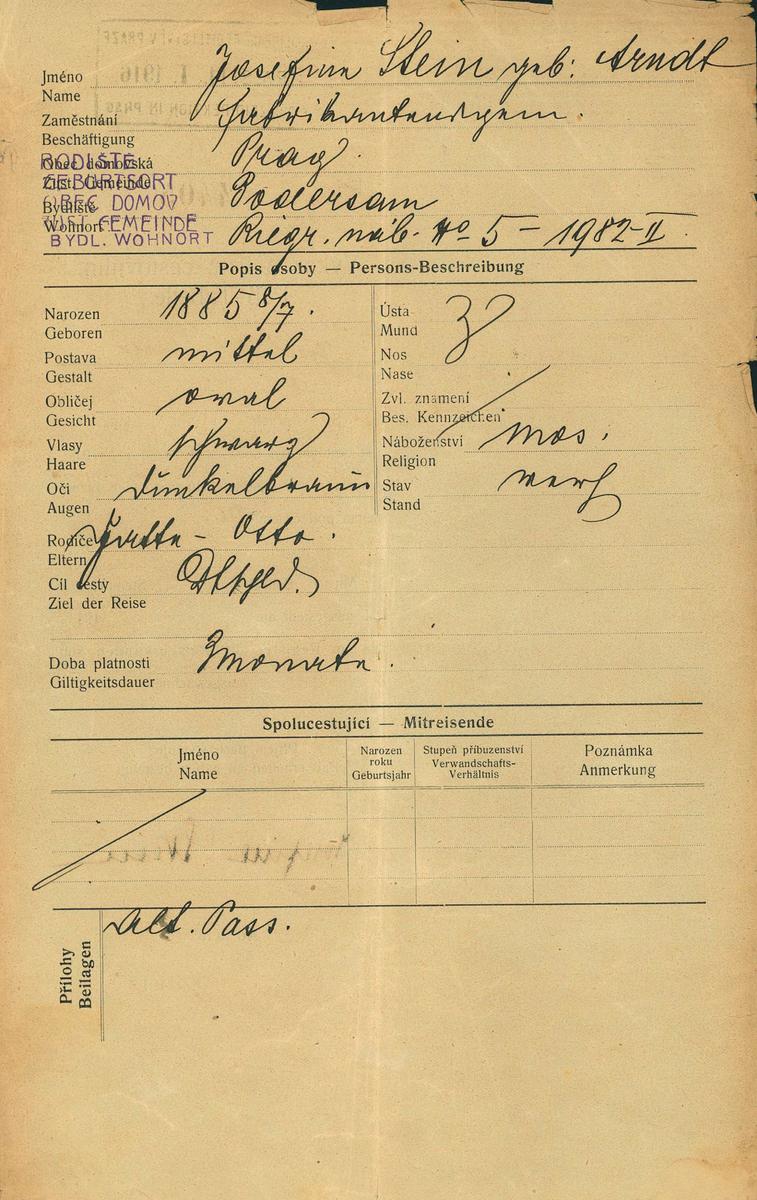 Jméno
Name
Josefine Stein geb: Arndt
Zaměstnání
Beschäftigung
Obec domovská
Zust. Gemeinde
Bydliště
Wohnort
RODIŠTE
GEBURTSORT
OBEC DOMOV
ZUST. GEMEINDE
BYDL. WOHNORT
Prag
Podersam
Riegr. náb. No 5 - 1982-II
Popis osoby — Persons-Beschreibung
Narozen
Geboren
1885 8/7.
Postava
Gestalt
mittel
Obličej
Gesicht
oval
Vlasy
Haare
schwarz
Oči
Augen
dunkelbraun
Rodiče
Eltern
Otto.
Cíl cesty
Ziel der Reise
Dtschld.
Doba platnosti
Giltigkeitsdauer
3 Monate.
Ústa
Mund
Nos
Nase
Zvl. znamení
Bes. Kennzeichen
Náboženství
Religion
mos.
Stav
Stand
verh
Spolucestující — Mitreisende
Jméno
Name
Narozen
roku
Geburtsjahr
Stupeň příbuzenství
Verwandschafts-
Verhältnis
Poznámka
Anmerkung
Přílohy
Beilagen
alt. Pass.